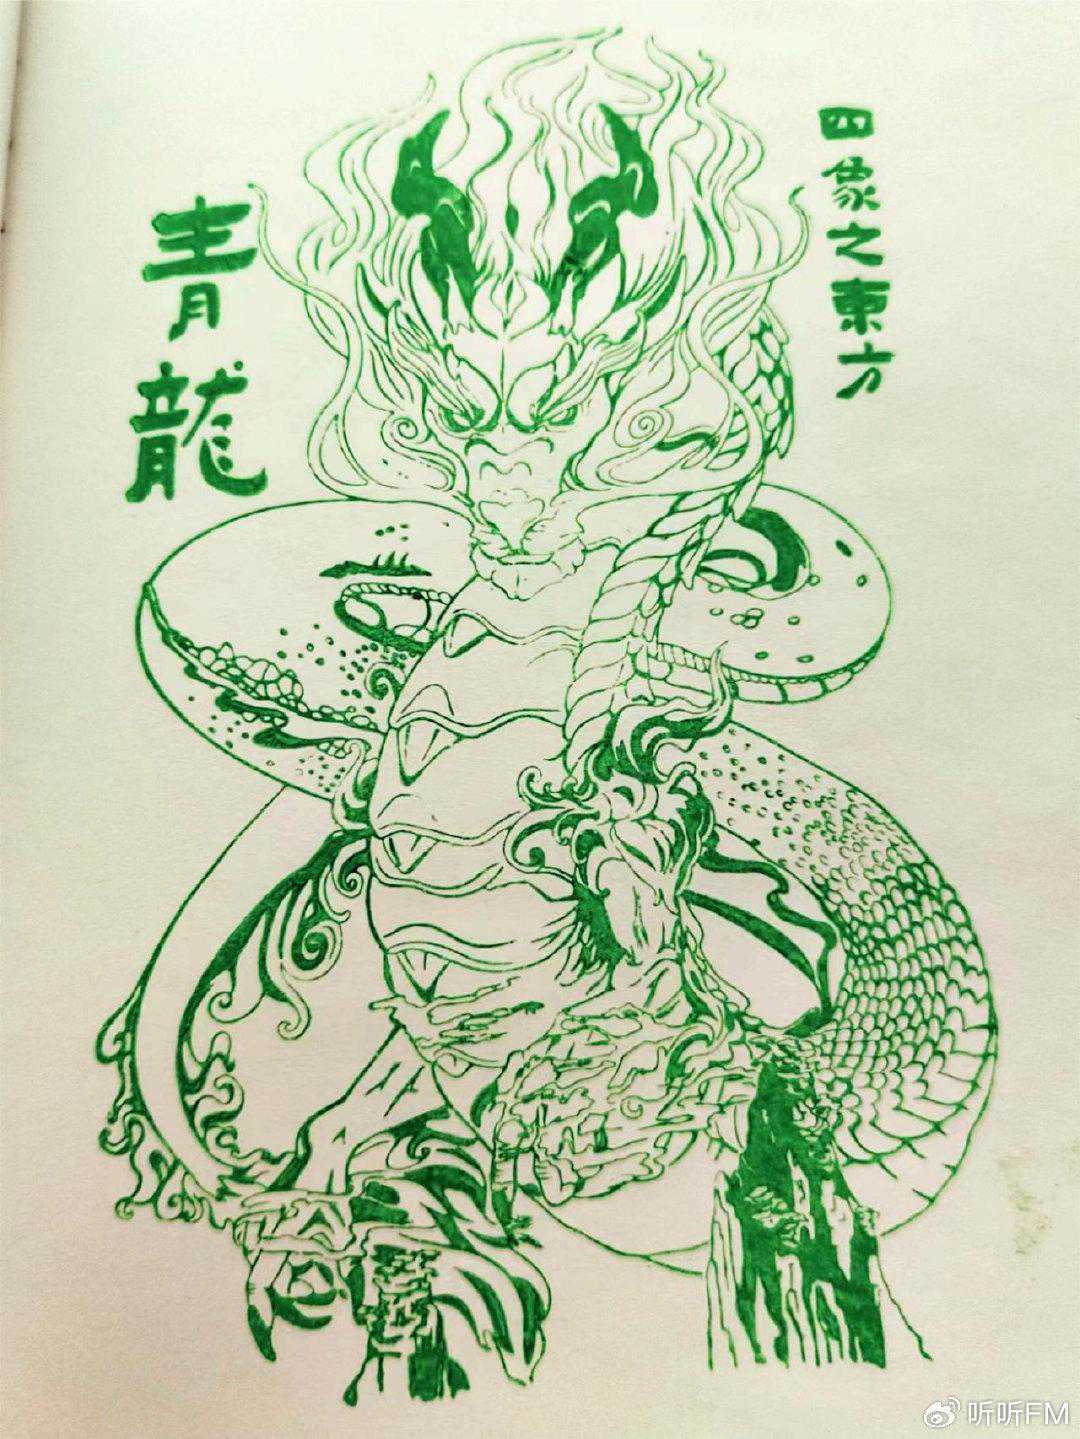 四象之東方
青龍
听听FM